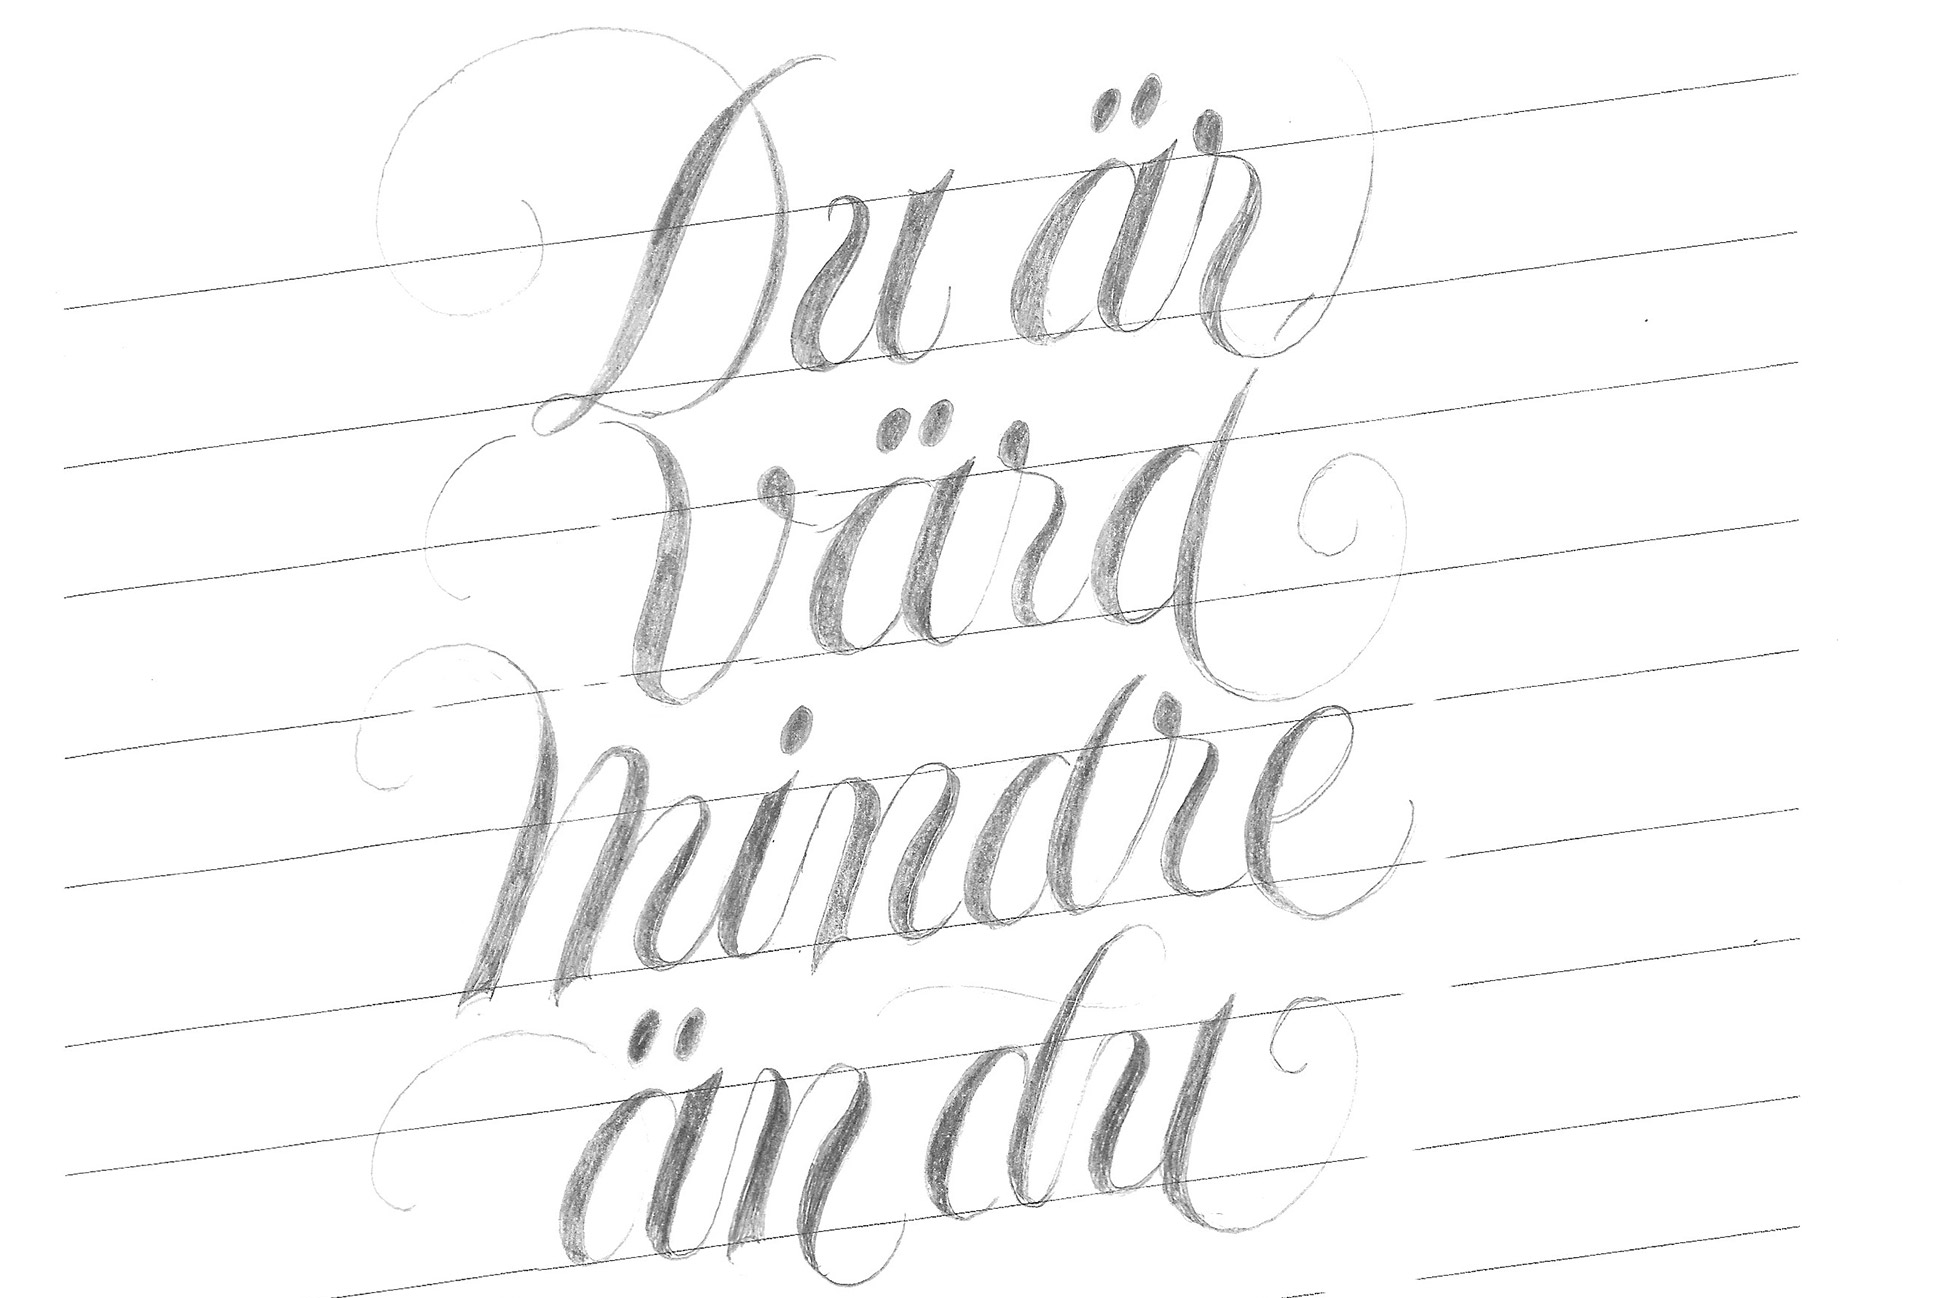 Du är
Värd
mindre
än du